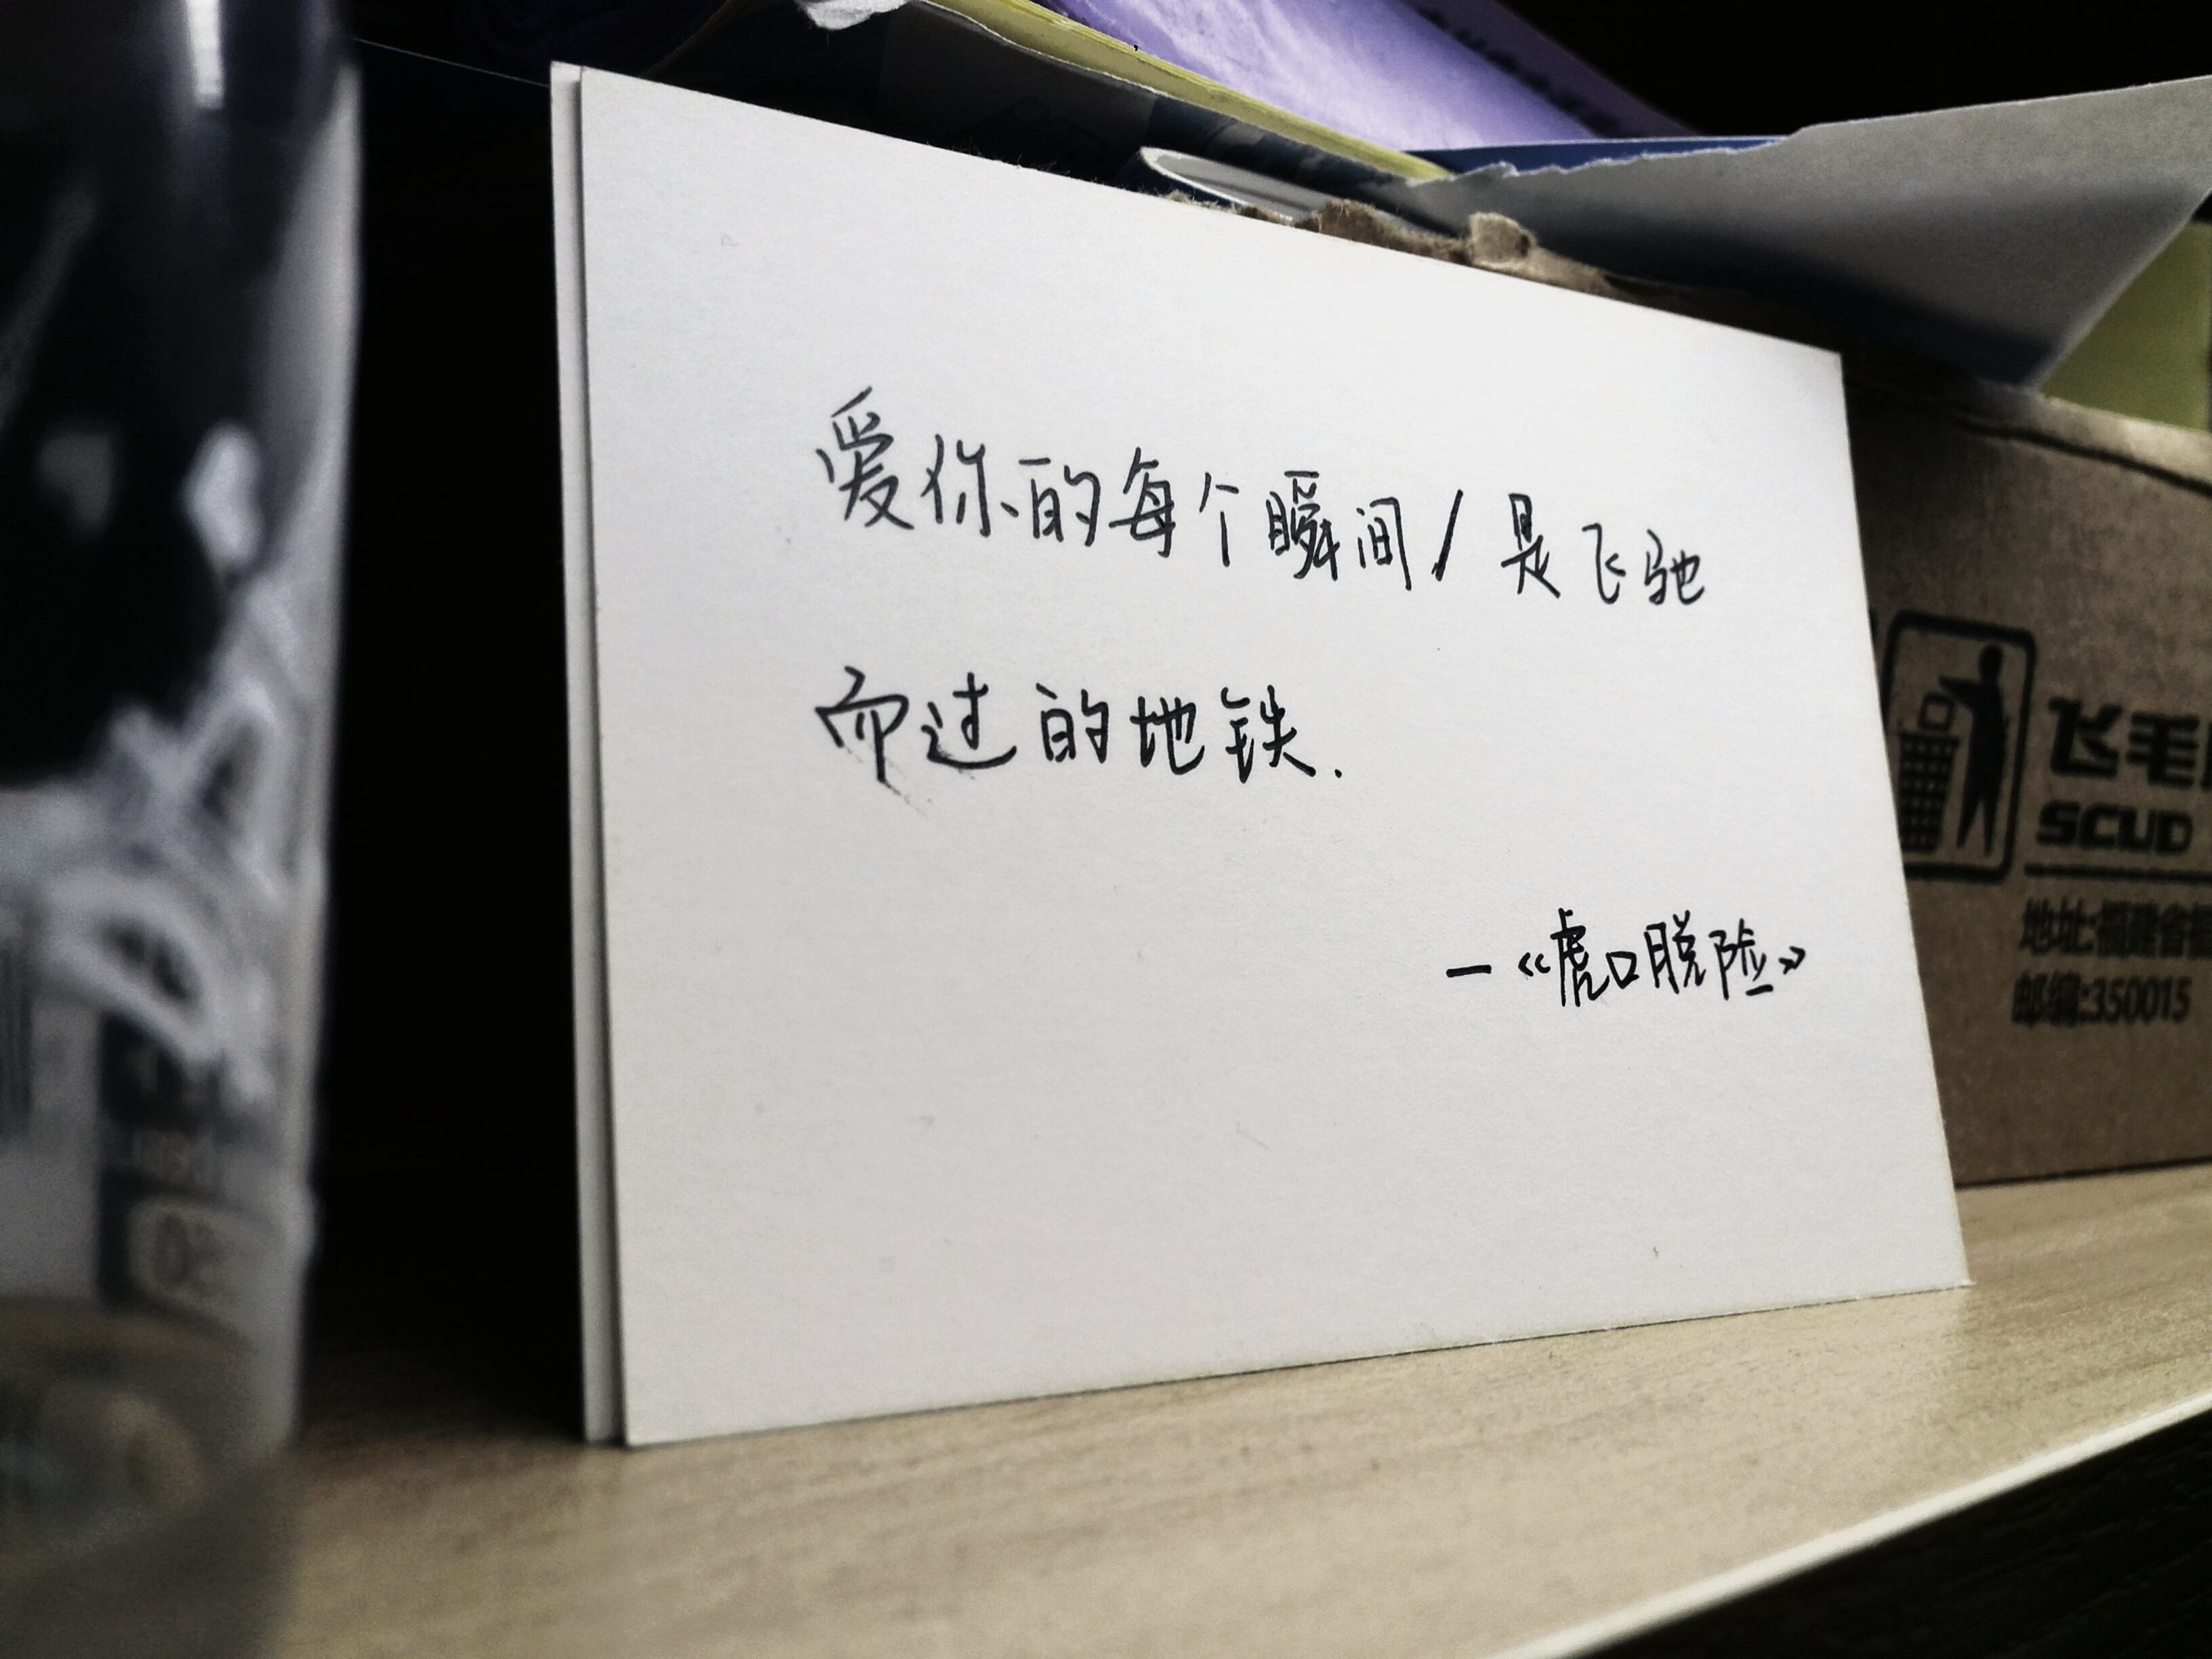 爱你的每个瞬间/是飞驰
而过的地铁.
—《虎口脱险》
飞毛
SCUD
地址:福建省福
邮编:350015